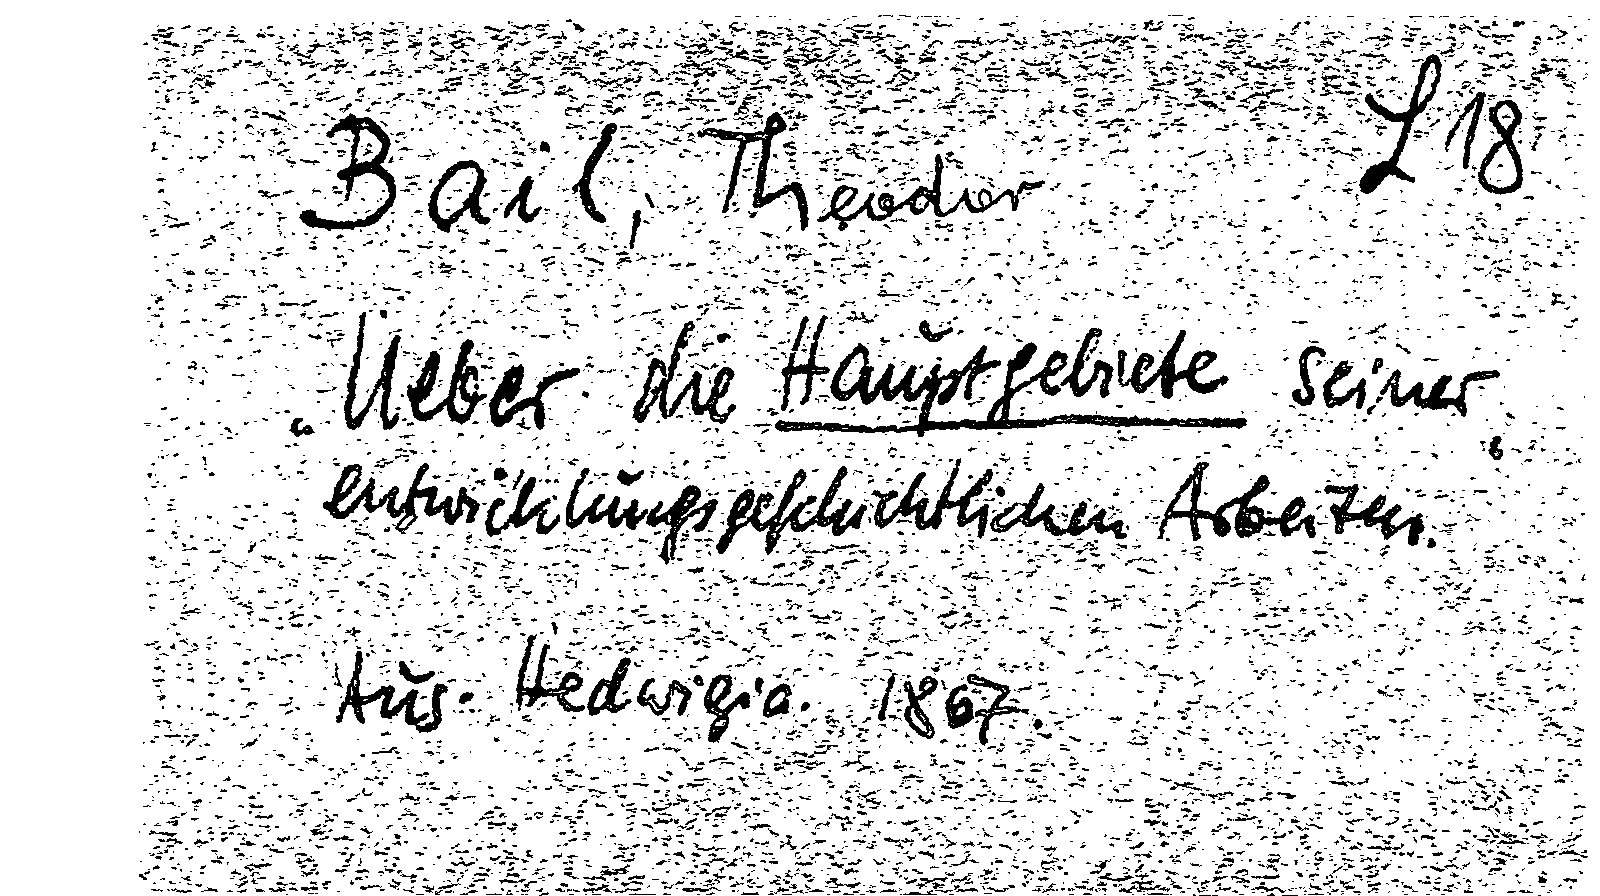 L 18
Bail, Theodor
„Ueber die Hauptgebiete seiner
entwicklungsgeschichtlichen Arbeiten.
Aus. Hedwigia. 1867.